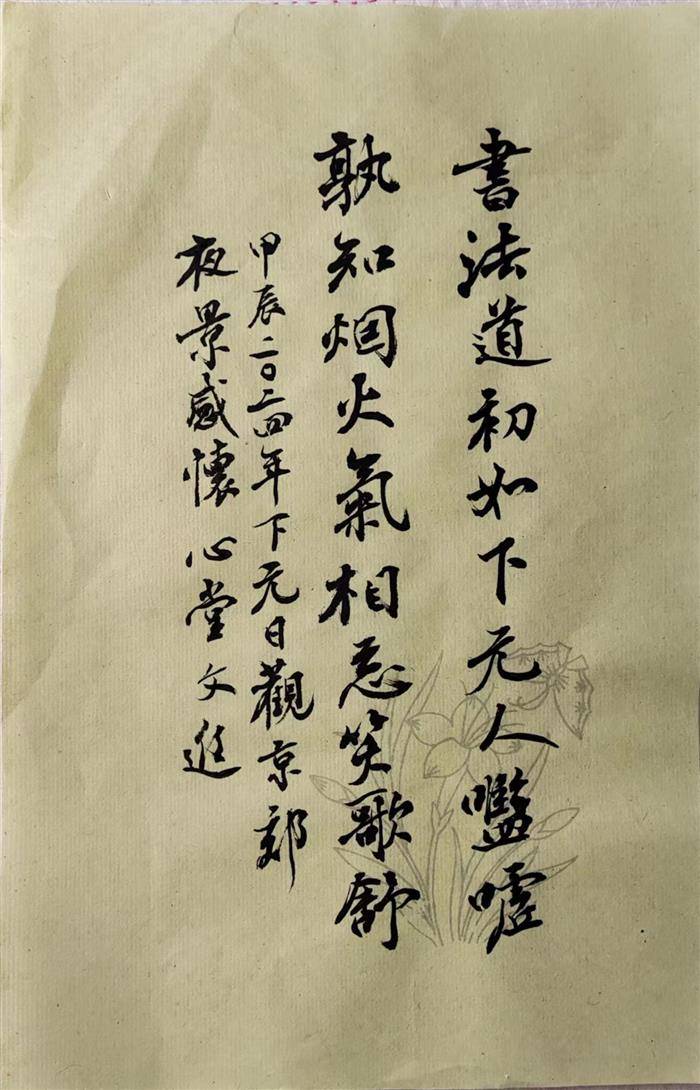 書法道初如下元人嚂嘘
孰知烟火氣相忘笑歌舒
甲辰二〇二四年下元日觀京郊
夜景感懷心堂文進